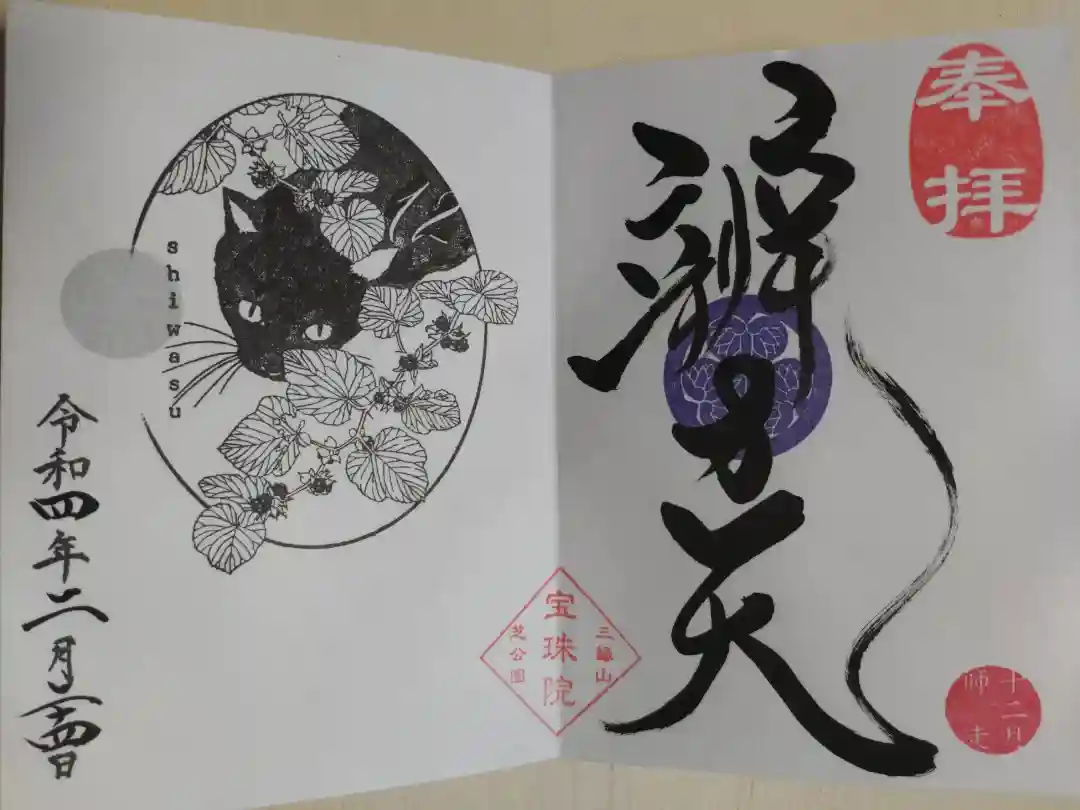 奉拝
辨才天
十二月
師走
三緣山
宝珠院
芝公園
shiwasu
令和四年十二月二十四日